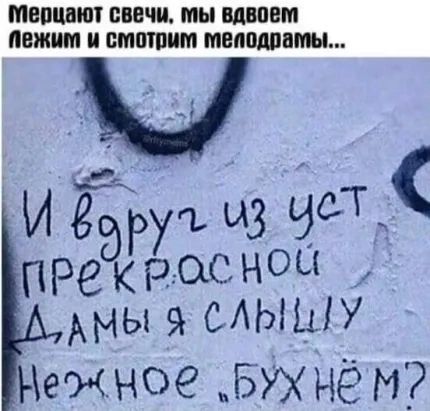 Мерцают свечи, мы вдвоем
Лежим и смотрим мелодрамы...
И вдруг из уст
прекрасной
дамы я слышу
нежное „Бухнём?